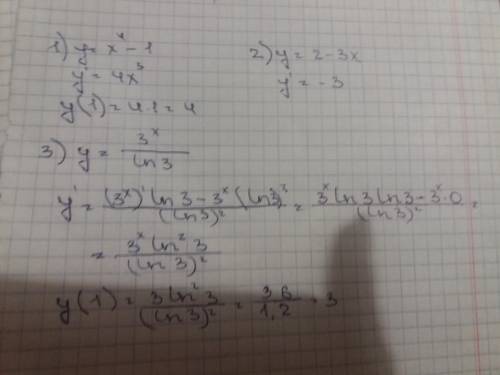 1) y = x⁴ - 1
y' = 4x³
y'(1) = 4·1 = 4
2) y = 2 - 3x
y' = -3
3) y = 3ˣ / ln 3
y' = ((3ˣ)' ln 3 - 3ˣ (ln 3)') / (ln 3)² = (3ˣ ln 3 ln 3 - 3ˣ · 0) / (ln 3)² =
= 3ˣ ln² 3 / (ln 3)²
y'(1) = 3 ln² 3 / (ln 3)² = 3,6 / 1,2 = 3